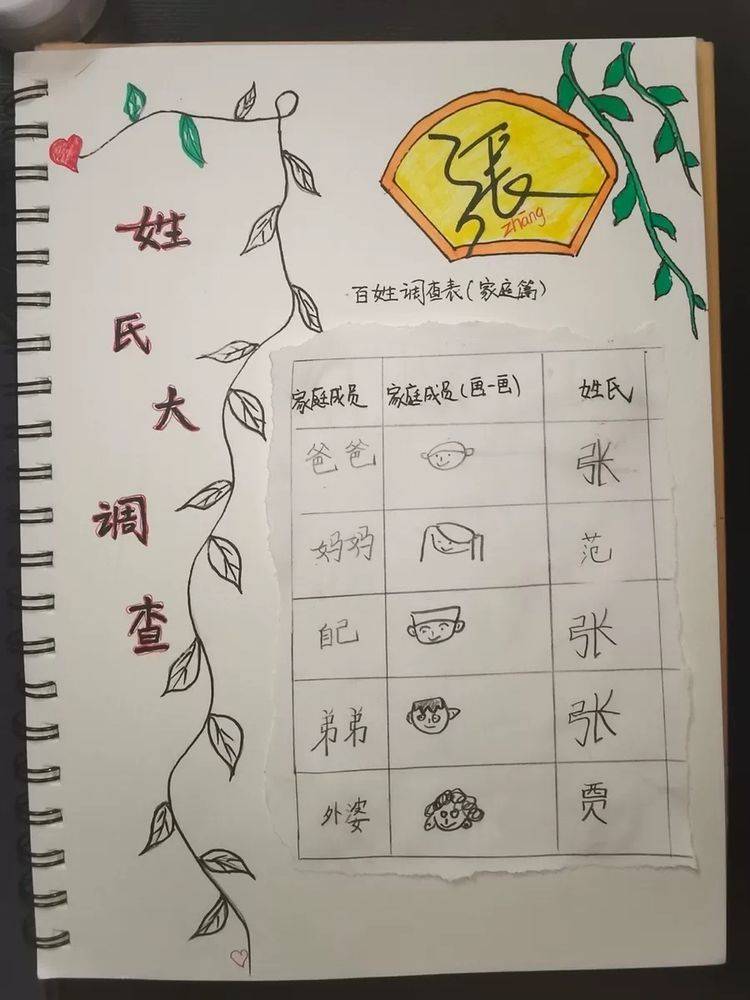 姓氏大调查
張
zhāng
百姓调查表(家庭篇)
家庭成员 家庭成员(画一画) 姓氏
爸爸 张
妈妈 范
自己 张
弟弟 张
外婆 贾